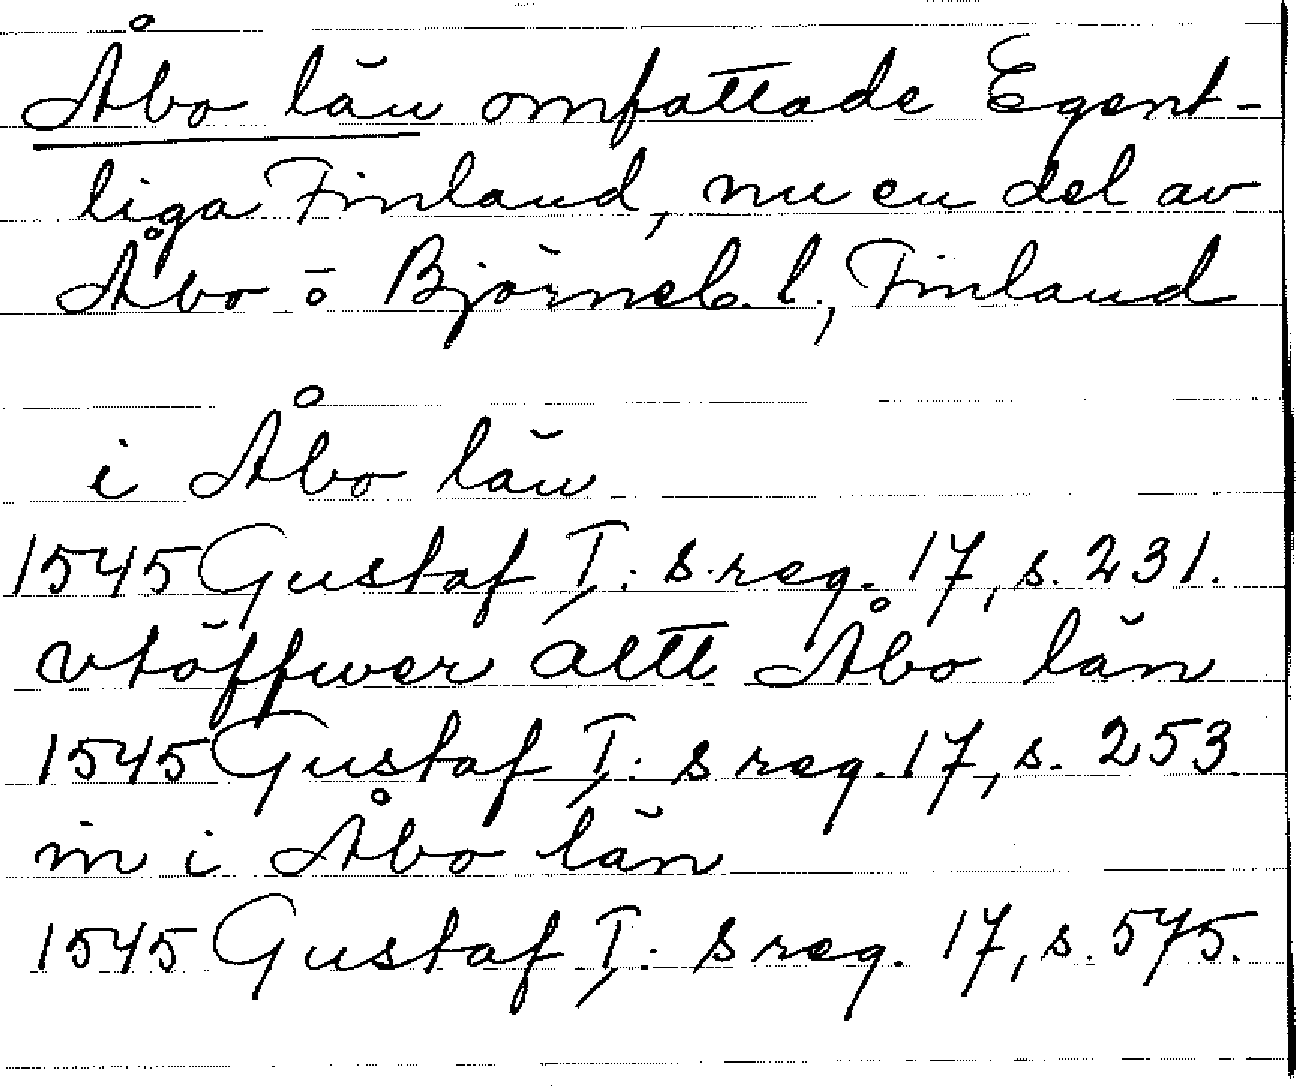 Åbo län omfattade Egent-
liga Finland, nu en del av
Åbo o Björneb. l., Finland
i Åbo län
1545 Gustaf I: s reg. 17, s. 231.
vtöffwer altt Åbo län
1545 Gustaf I: s reg. 17, s. 253.
in i Åbo län
1545 Gustaf I: s reg. 17, s. 575.